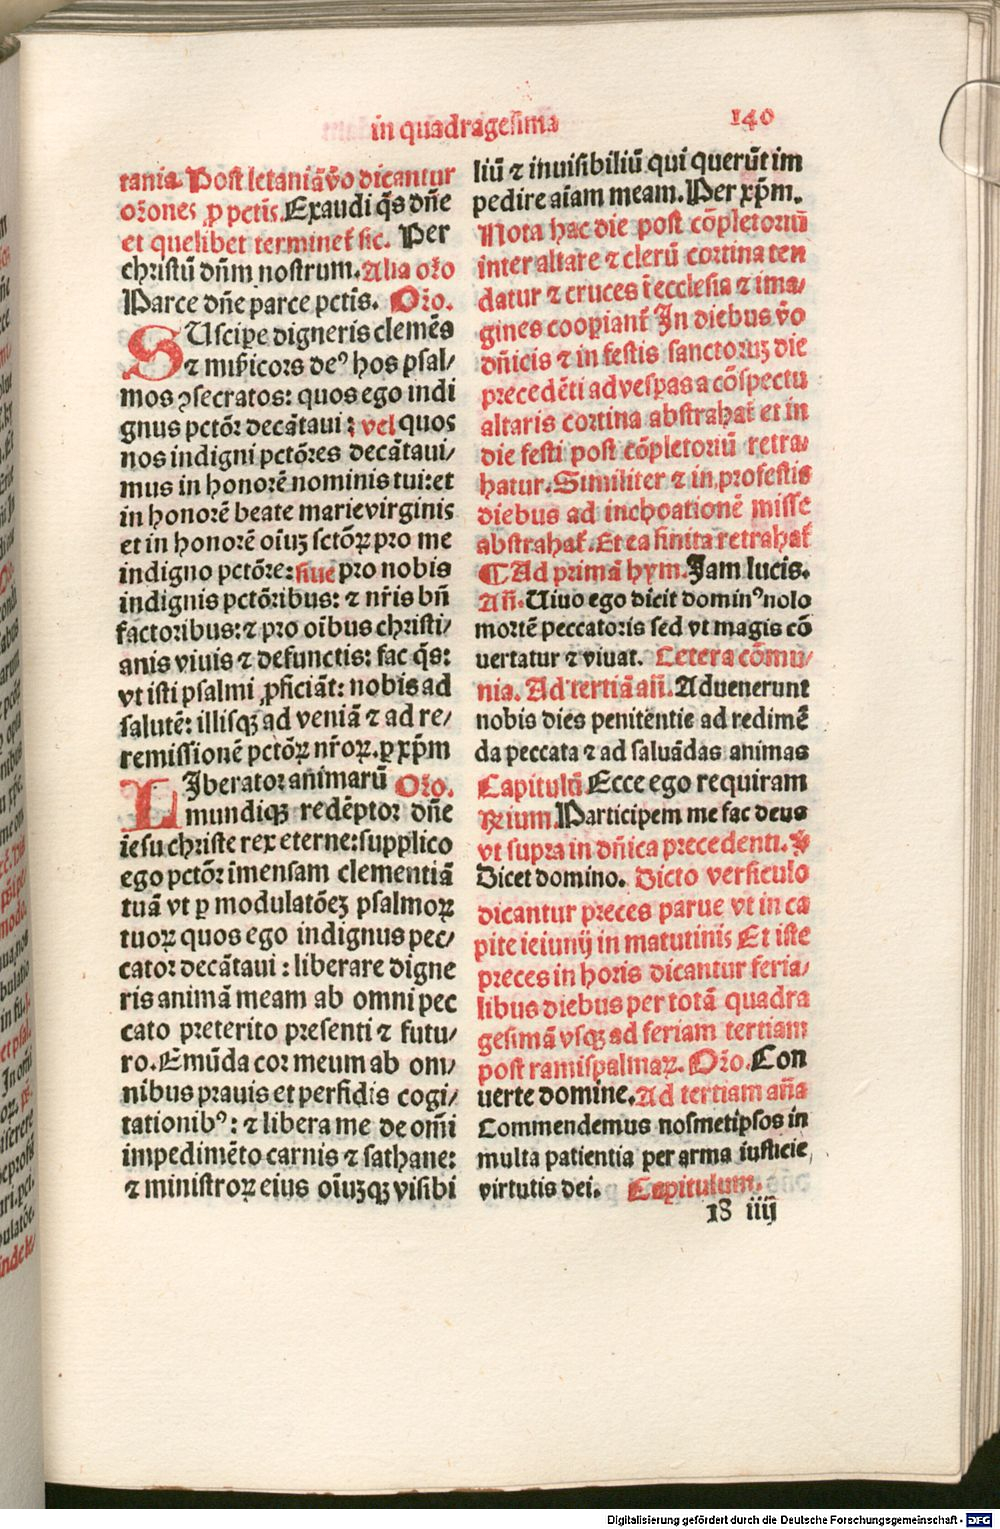 in quadragesima
140
tania. Post letaniā v̄o dicantur
or̄ones ꝓ pctīs. Exaudi q̄s dn̄e
et quelibet termineť sic. Per
christū dn̄m nostrum. Alia or̄o
Parce dn̄e parce pctīs. Or̄o.
SUscipe digneris clemēs
⁊ miẜicors deꝰ hos psal/
mos ꝯsecratos: quos ego indi
gnus pctōr decātaui: vel quos
nos indigni pctōres decātaui/
mus in honorē nominis tui: et
in honorē beate marie virginis
et in honorē oīuꝫ sctōꝝ pro me
indigno pctōre: siue pro nobis
indignis pctōribus: ⁊ nr̄is bn̄
factoribus: ⁊ pro oībus christi/
anis viuis ⁊ defunctis: fac q̄s:
vt isti psalmi ꝓficiāt: nobis ad
salutē: illisqꝫ ad veniā ⁊ ad re/
remissionē pctōꝝ nr̄oꝝ. ꝑ xp̄m
LIberator animarū Or̄o.
mundiqꝫ redēptor dn̄e
iesu christe rex eterne: supplico
ego pctōr imensam clementiā
tuā vt ꝑ modulatōeꝫ psalmoꝝ
tuoꝝ quos ego indignus pec/
cator decātaui: liberare digne
ris animā meam ab omni pec
cato preterito presenti ⁊ futu/
ro. Emūda cor meum ab om/
nibus prauis et perfidis cogi/
tationibꝰ: ⁊ libera me de om̄i
impedimēto carnis ⁊ sathane:
⁊ ministroꝝ eius oīuꝫqꝫ visibi
liū ⁊ inuisibiliū qui querūt im
pedire aīam meam. Per xp̄m.
Nota hac die post cōpletoriū
inter altare ⁊ clerū cortina ten
datur ⁊ cruces ī ecclesia ⁊ ima/
gines coopiant̄ In diebus v̄o
dn̄icis ⁊ in festis sanctoruꝫ die
precedēti ad vesꝑas a cōspectu
altaris cortina abstrahať et in
die festi post cōpletoriū retra/
hatur. Similiter ⁊ in profestis
diebus ad inchoationē misse
abstrahať. Et ea finita retrahať
¶ Ad primā hym. Jam lucis.
An̄. Uiuo ego dicit dominꝰ nolo
mortē peccatoris sed vt magis cō
uertatur ⁊ viuat. Cetera cōmu/
nia. Ad tertiā an̄. Aduenerunt
nobis dies penitentie ad redimē
da peccata ⁊ ad saluādas animas
Capitulū Ecce ego requiram
Rium. Participem me fac deus
vt supra in dn̄ica precedenti. ℣
Dicet domino. Dicto versiculo
dicantur preces parue vt in ca
pite ieiunij in matutinis Et iste
preces in horis dicantur feria/
libus diebus per totā quadra
gesimā vsqꝫ ad feriam tertiam
post ramispalmaꝝ. Or̄o. Con
uerte domine. Ad tertiam an̄a
Commendemus nosmetipsos in
multa patientia per arma iusticie
virtutis dei. Capitulum.
18 iiij
Digitalisierung gefördert durch die Deutsche Forschungsgemeinschaft - DFG